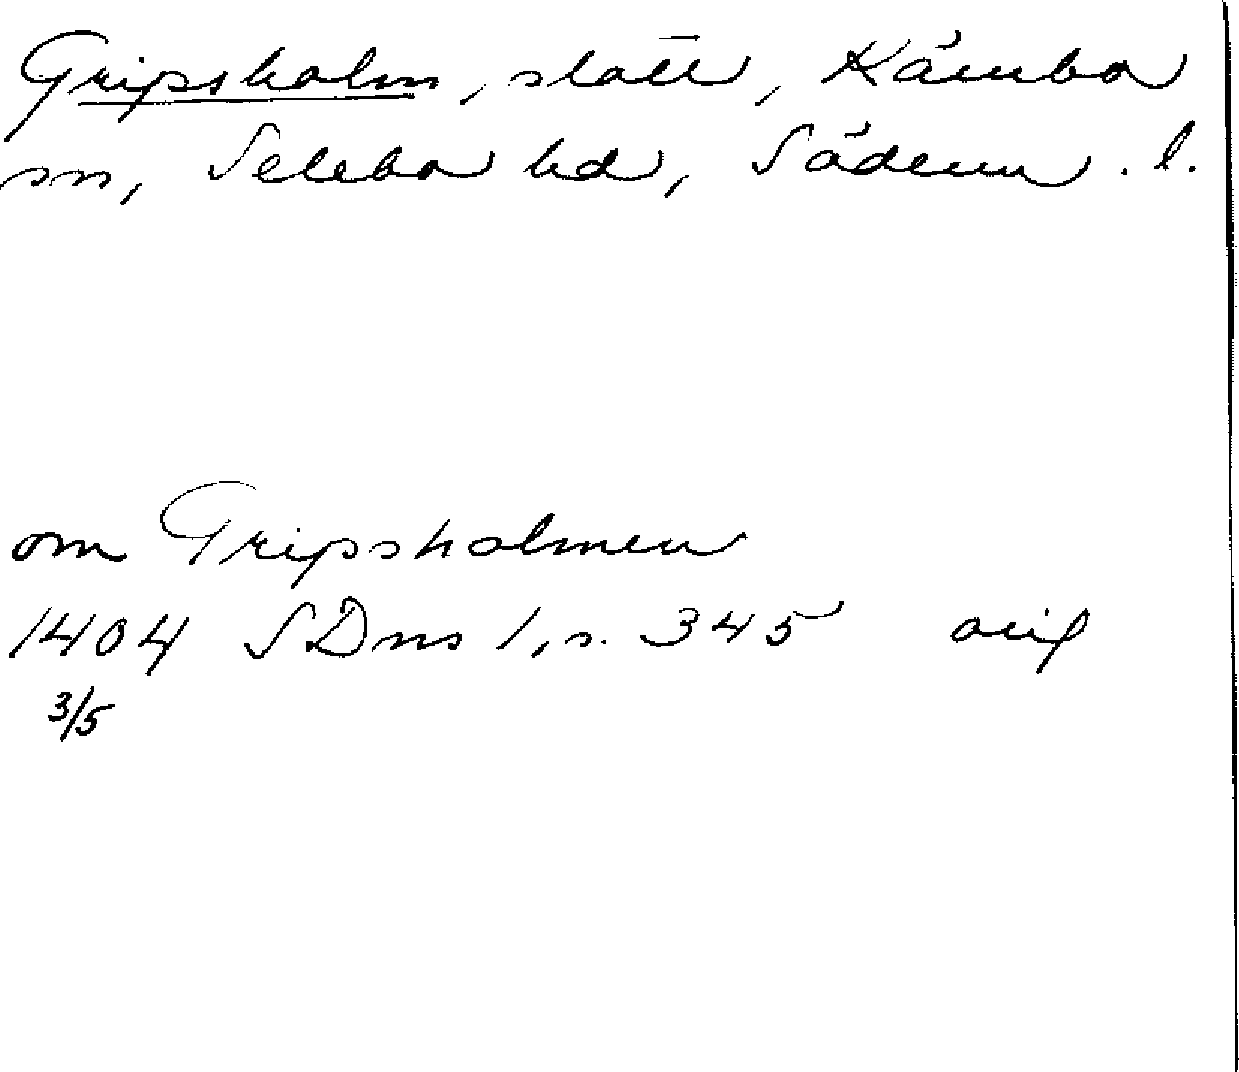 Gripsholm, slott, Kärnbo
sn, Selebo hd, Söderm. l.
om Gripsholmen
1404 SDns 1, s. 345 orig
3/5